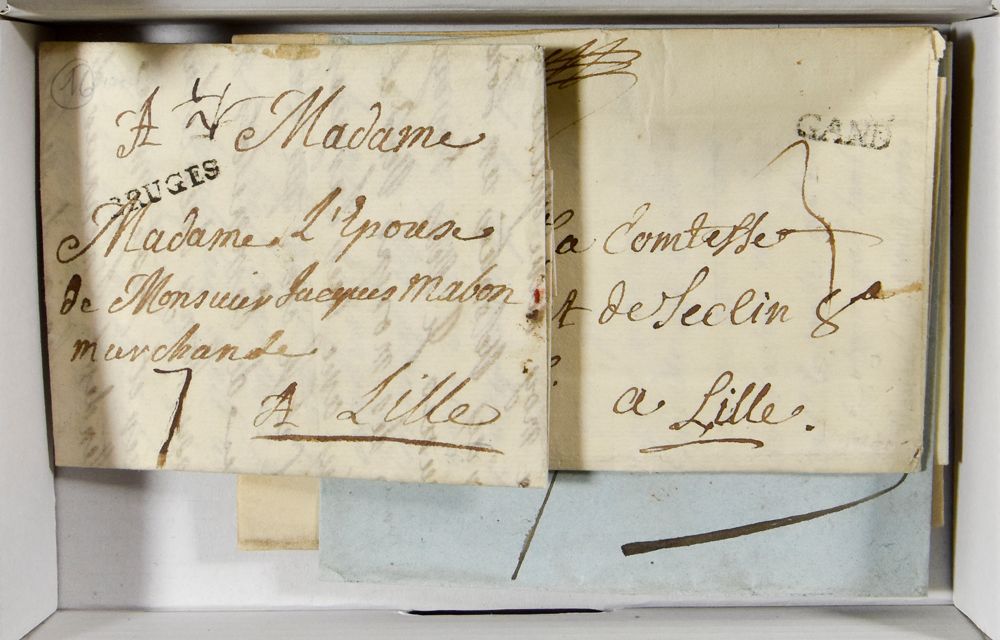 16
A Madame
BRUGES
Madame L'Epouse
de Monsieur Jacques Mabon
marchande
A Lille
GAND
la Comtesse
de Seclin &a
a Lille.